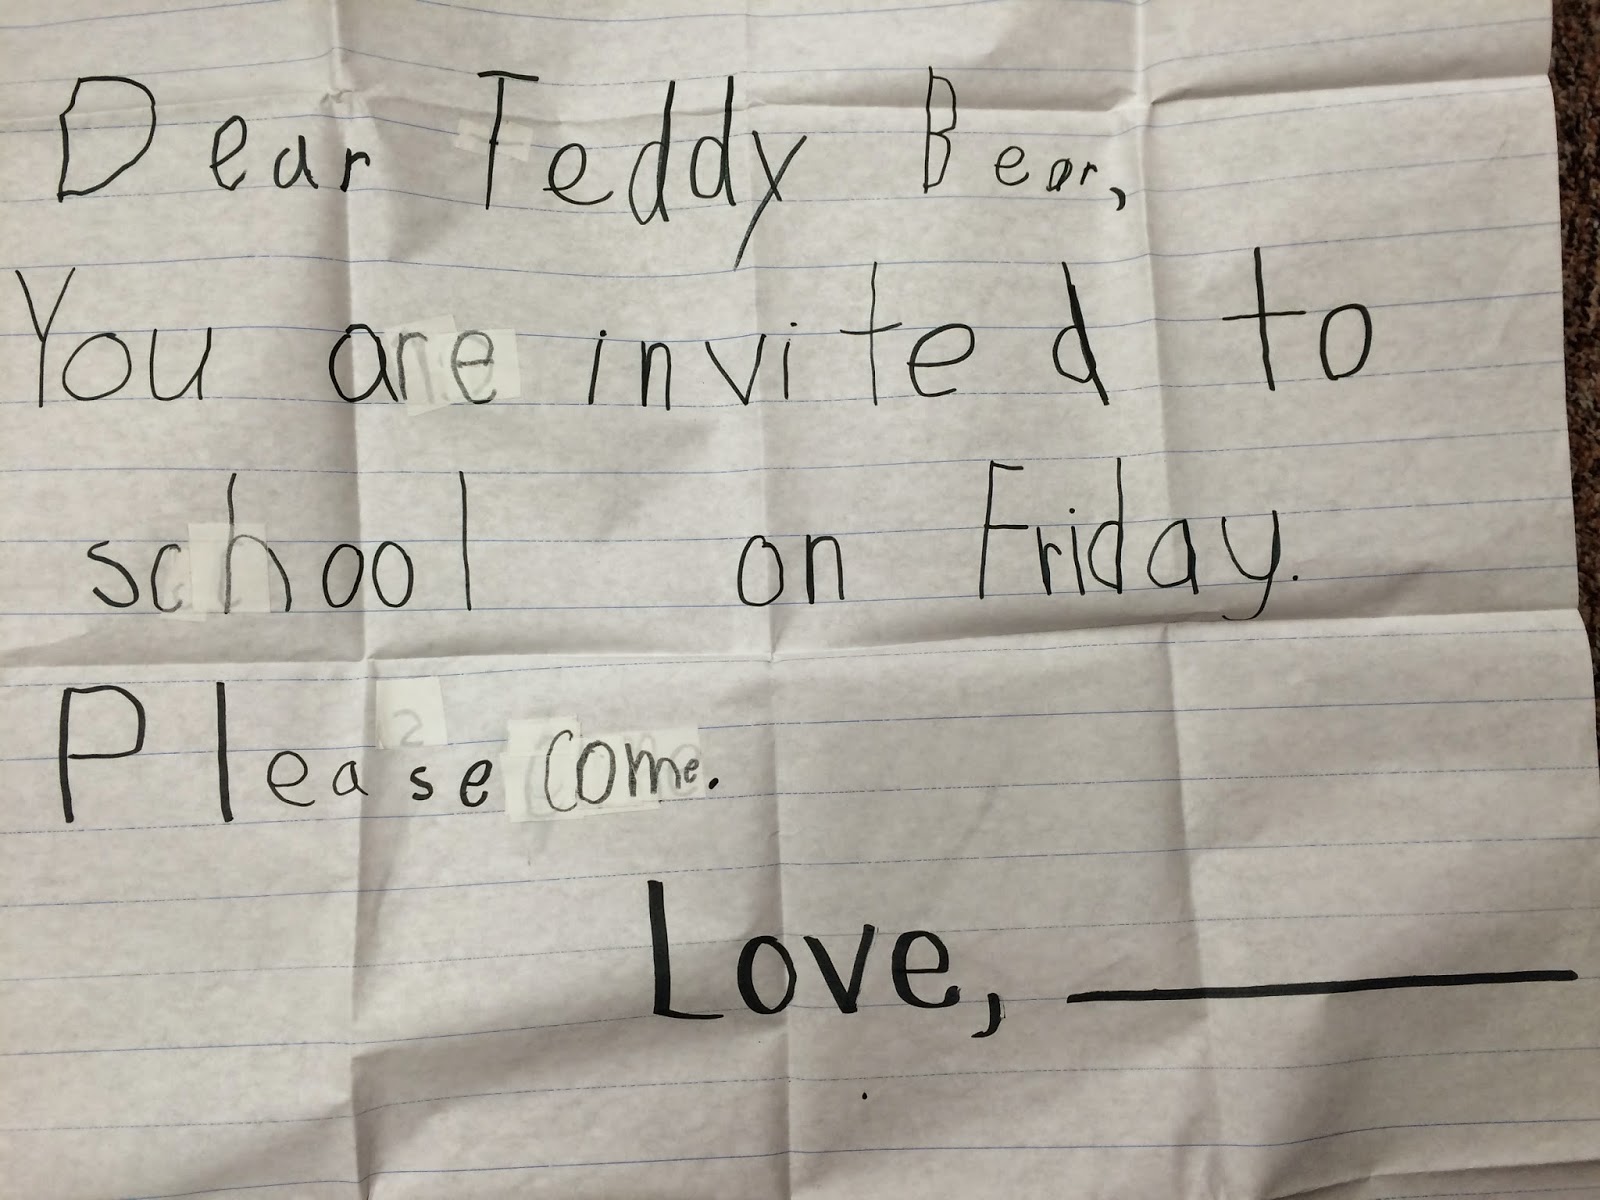 Dear Teddy Bear,
You are invited to
school on Friday.
Please come.
Love, __________